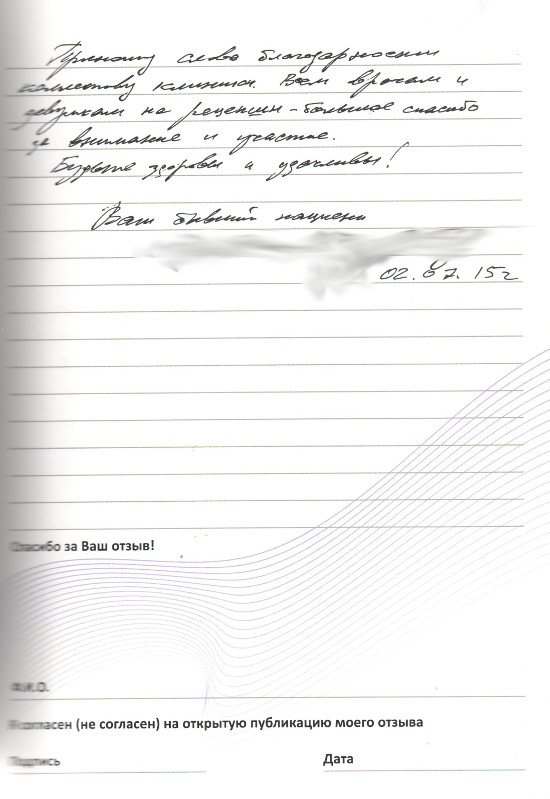 Приношу слова благодарности
коллективу клиники. Всем врачам и
девушкам на рецепции - большое спасибо
за внимание и участие.
Будьте здоровы и удачливы!
Ваш бывший пациент
02.07.15г
Спасибо за Ваш отзыв!
Ф.И.О.
Я согласен (не согласен) на открытую публикацию моего отзыва
Подпись Дата